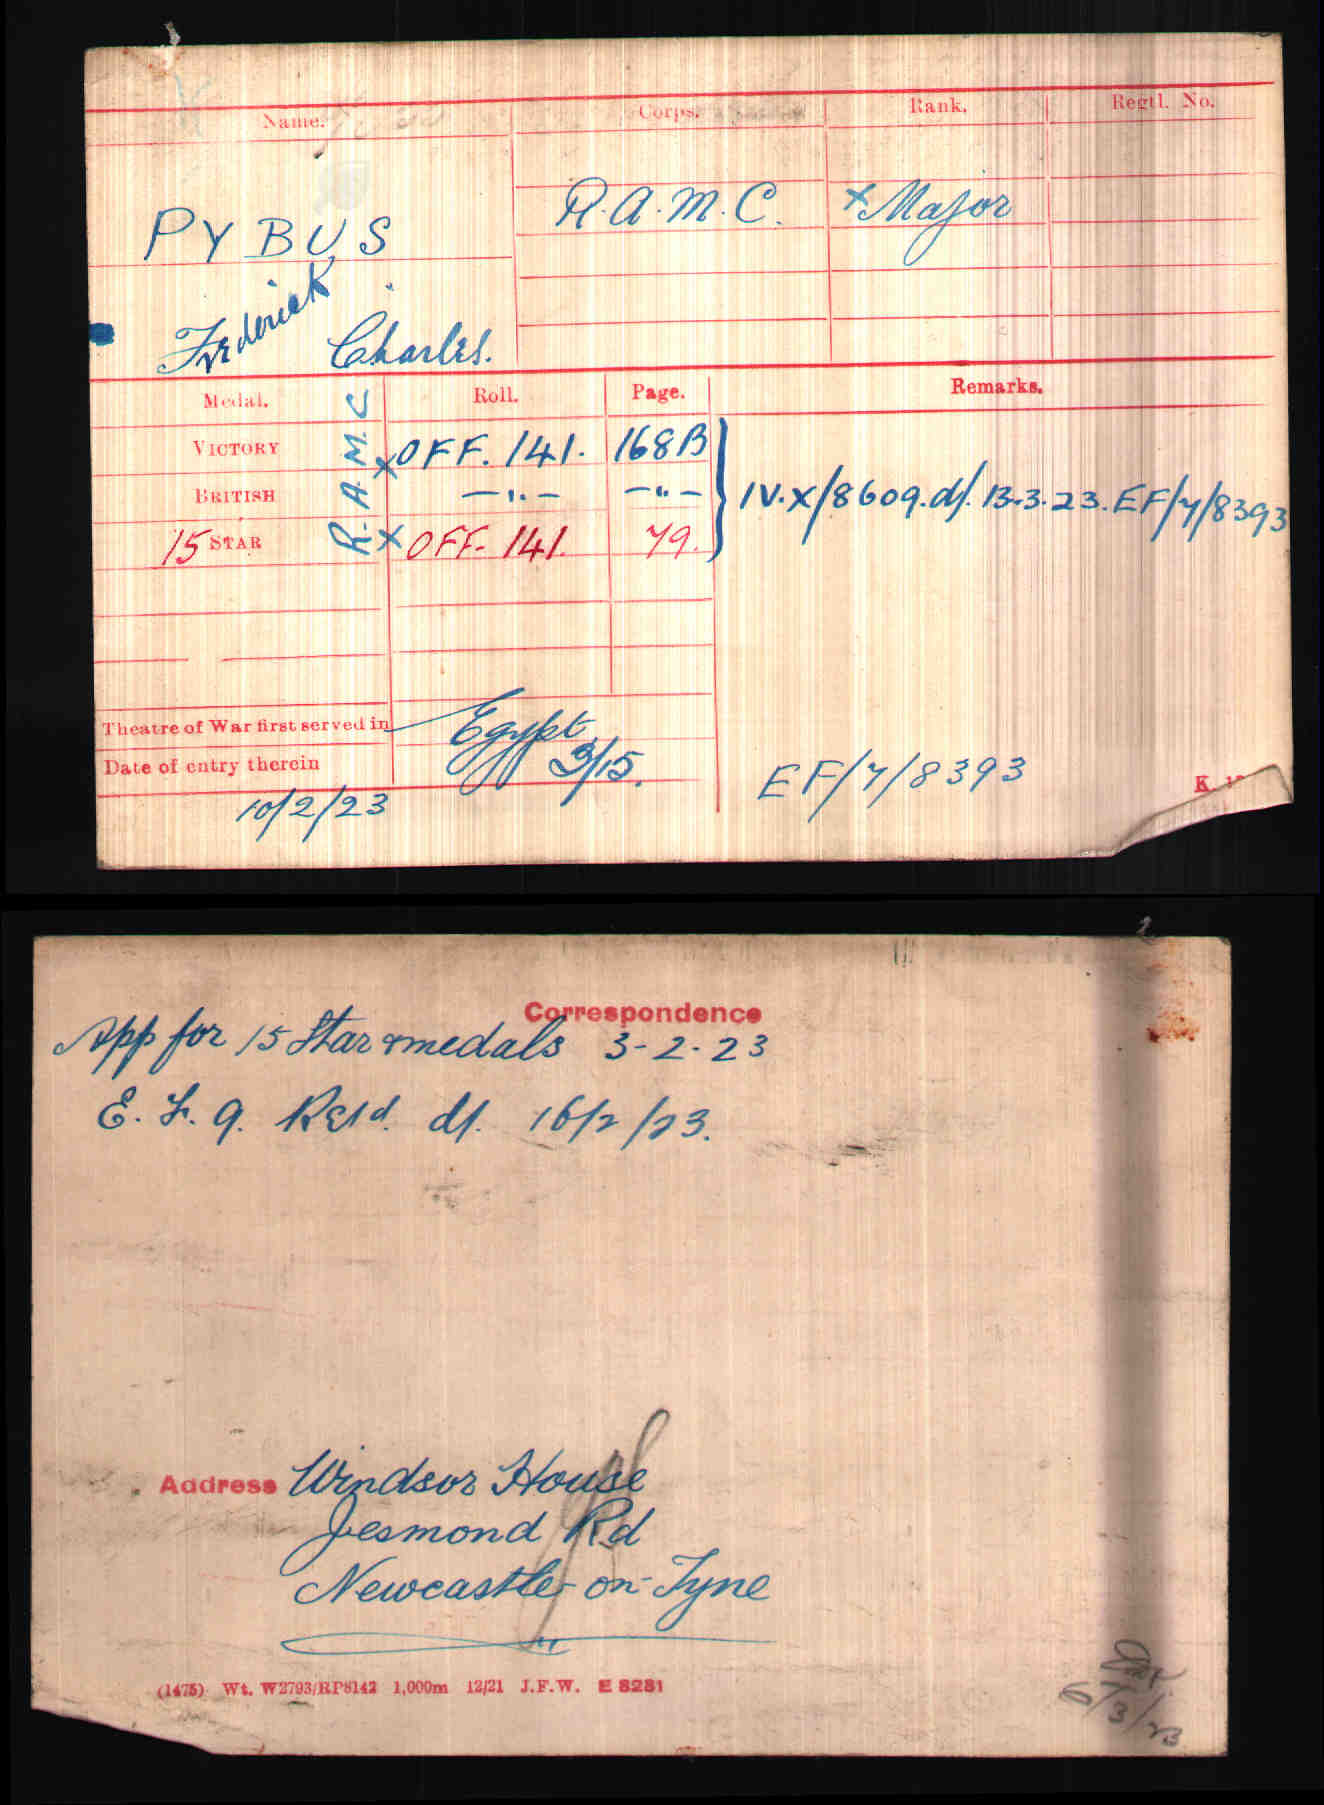 Name. Corps. Rank. Regtl. No.
PYBUS R.A.M.C. x Major
Frederick Charles.
Medal. Roll. Page. Remarks.
R.A.M.C
VICTORY x OFF. 141. 168B
BRITISH —"— —"— IV.X/8609.d/. 13.3.23. EF/7/8393
15 STAR x OFF. 141. 79.
Theatre of War first served in Egypt
Date of entry therein 3/15.
10/2/23 EF/7/8393
K.
Correspondence
App for 15 Star & medals 3-2-23
E. F. 9. Retd. d/. 16/2/23.
Address Windsor House
Jesmond Rd
Newcastle-on-Tyne
(1475) Wt. W2793/RP8142 1,000m 12/21 J.F.W. E 8281
6/3/23